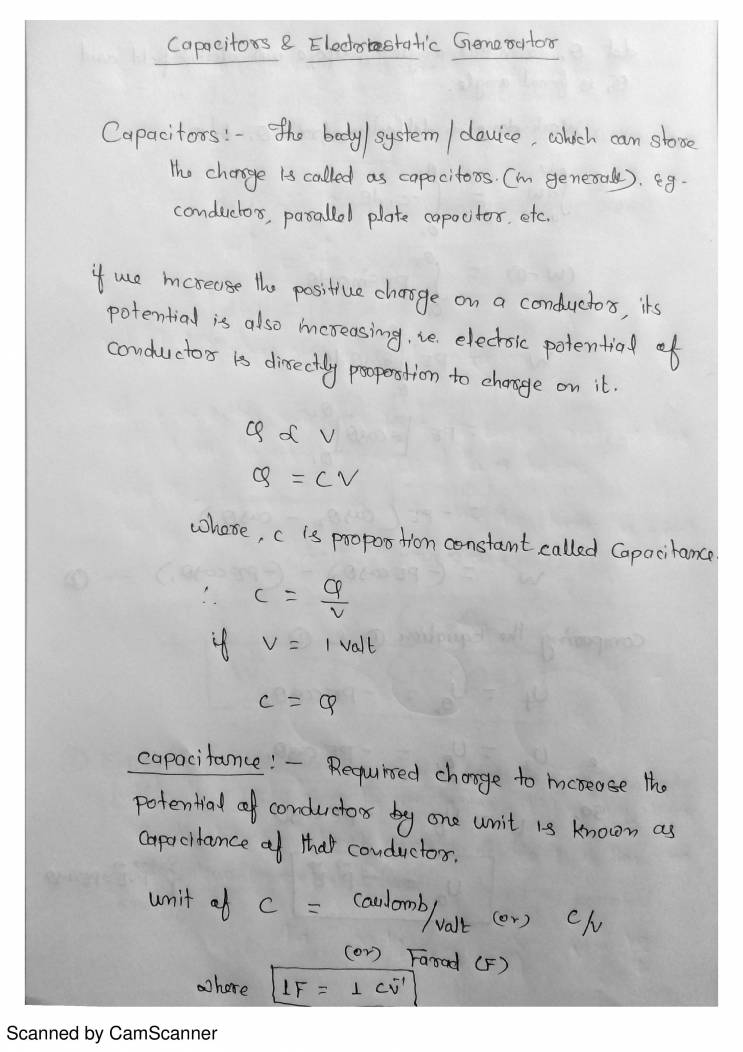 Capacitors & Electrostatic Generator
Capacitors:- The body/system/device, which can store
the charge is called as capacitors. (in generals). eg-
conductor, parallel plate capacitor, etc.
if we increase the positive charge on a conductor, its
potential is also increasing. i.e. electric potential of
conductor is directly proportion to charge on it.
Q ∝ V
Q = CV
where, C is proportion constant called Capacitance.
∴ C = Q/V
if V = 1 valt
C = Q
capacitance:- Required charge to increase the
potential of conductor by one unit is known as
Capacitance of that conductor.
unit of C = Coulomb/valt (or) C/V
(or) Farad (F)
where 1F = 1 CV⁻¹
Scanned by CamScanner